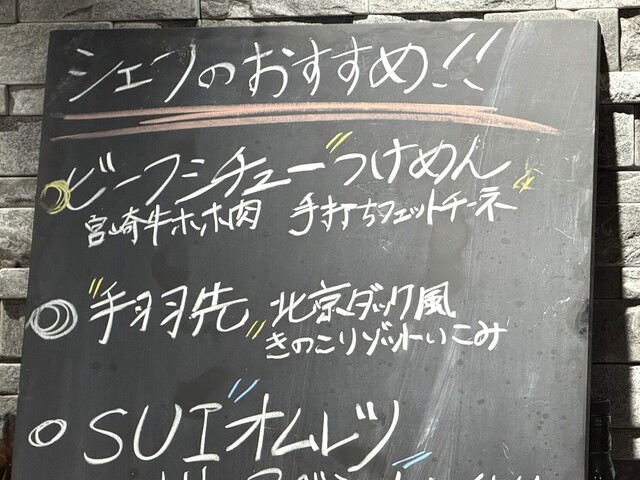 シェフのおすすめ!!
ビーフシチュー"つけめん"
宮崎牛ホホ肉 手打ちフェットチーネ
"手羽先"北京ダック風
きのこリゾットいこみ
SUI"オムレツ"